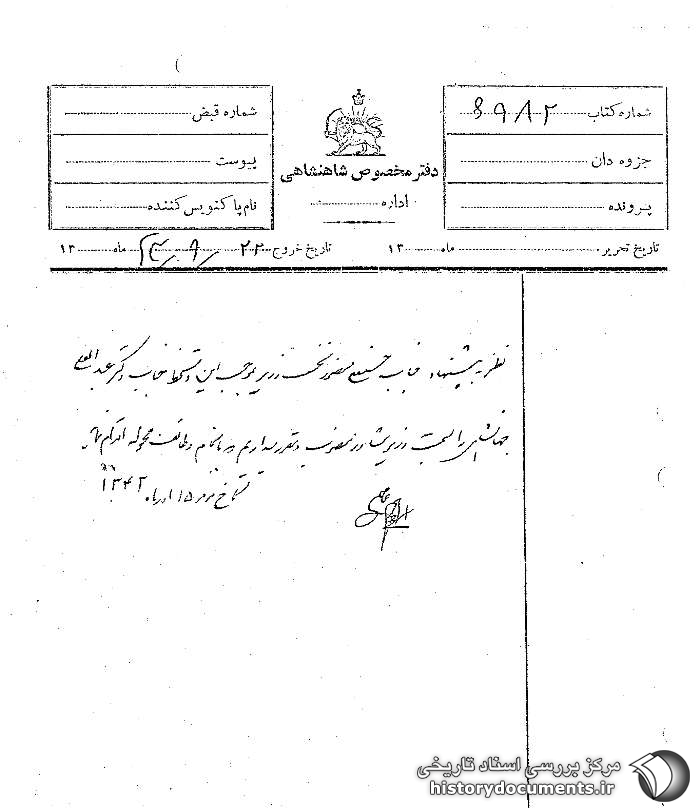 شماره کتاب ۶۹۸۲
جزوه دان
پرونده
دفتر مخصوص شاهنشاهی
اداره
شماره قبض
پیوست
نام پاکنویس کننده
تاریخ تحریر ماه ۱۳
تاریخ خروج ۲۲ ماه ۱۳
نظر به پیشنهاد جناب حسنعلی منصور نخست وزیر بموجب این دستخط جناب دکتر عبدالعلی
جهانشاهی را بسمت وزیر مشاور منصوب و مقرر میداریم به انجام وظائف محوله اقدام نماید
بتاریخ ۱۵ ماه ۱۳۴۲
مرکز بررسی اسناد تاریخی
historydocuments.ir